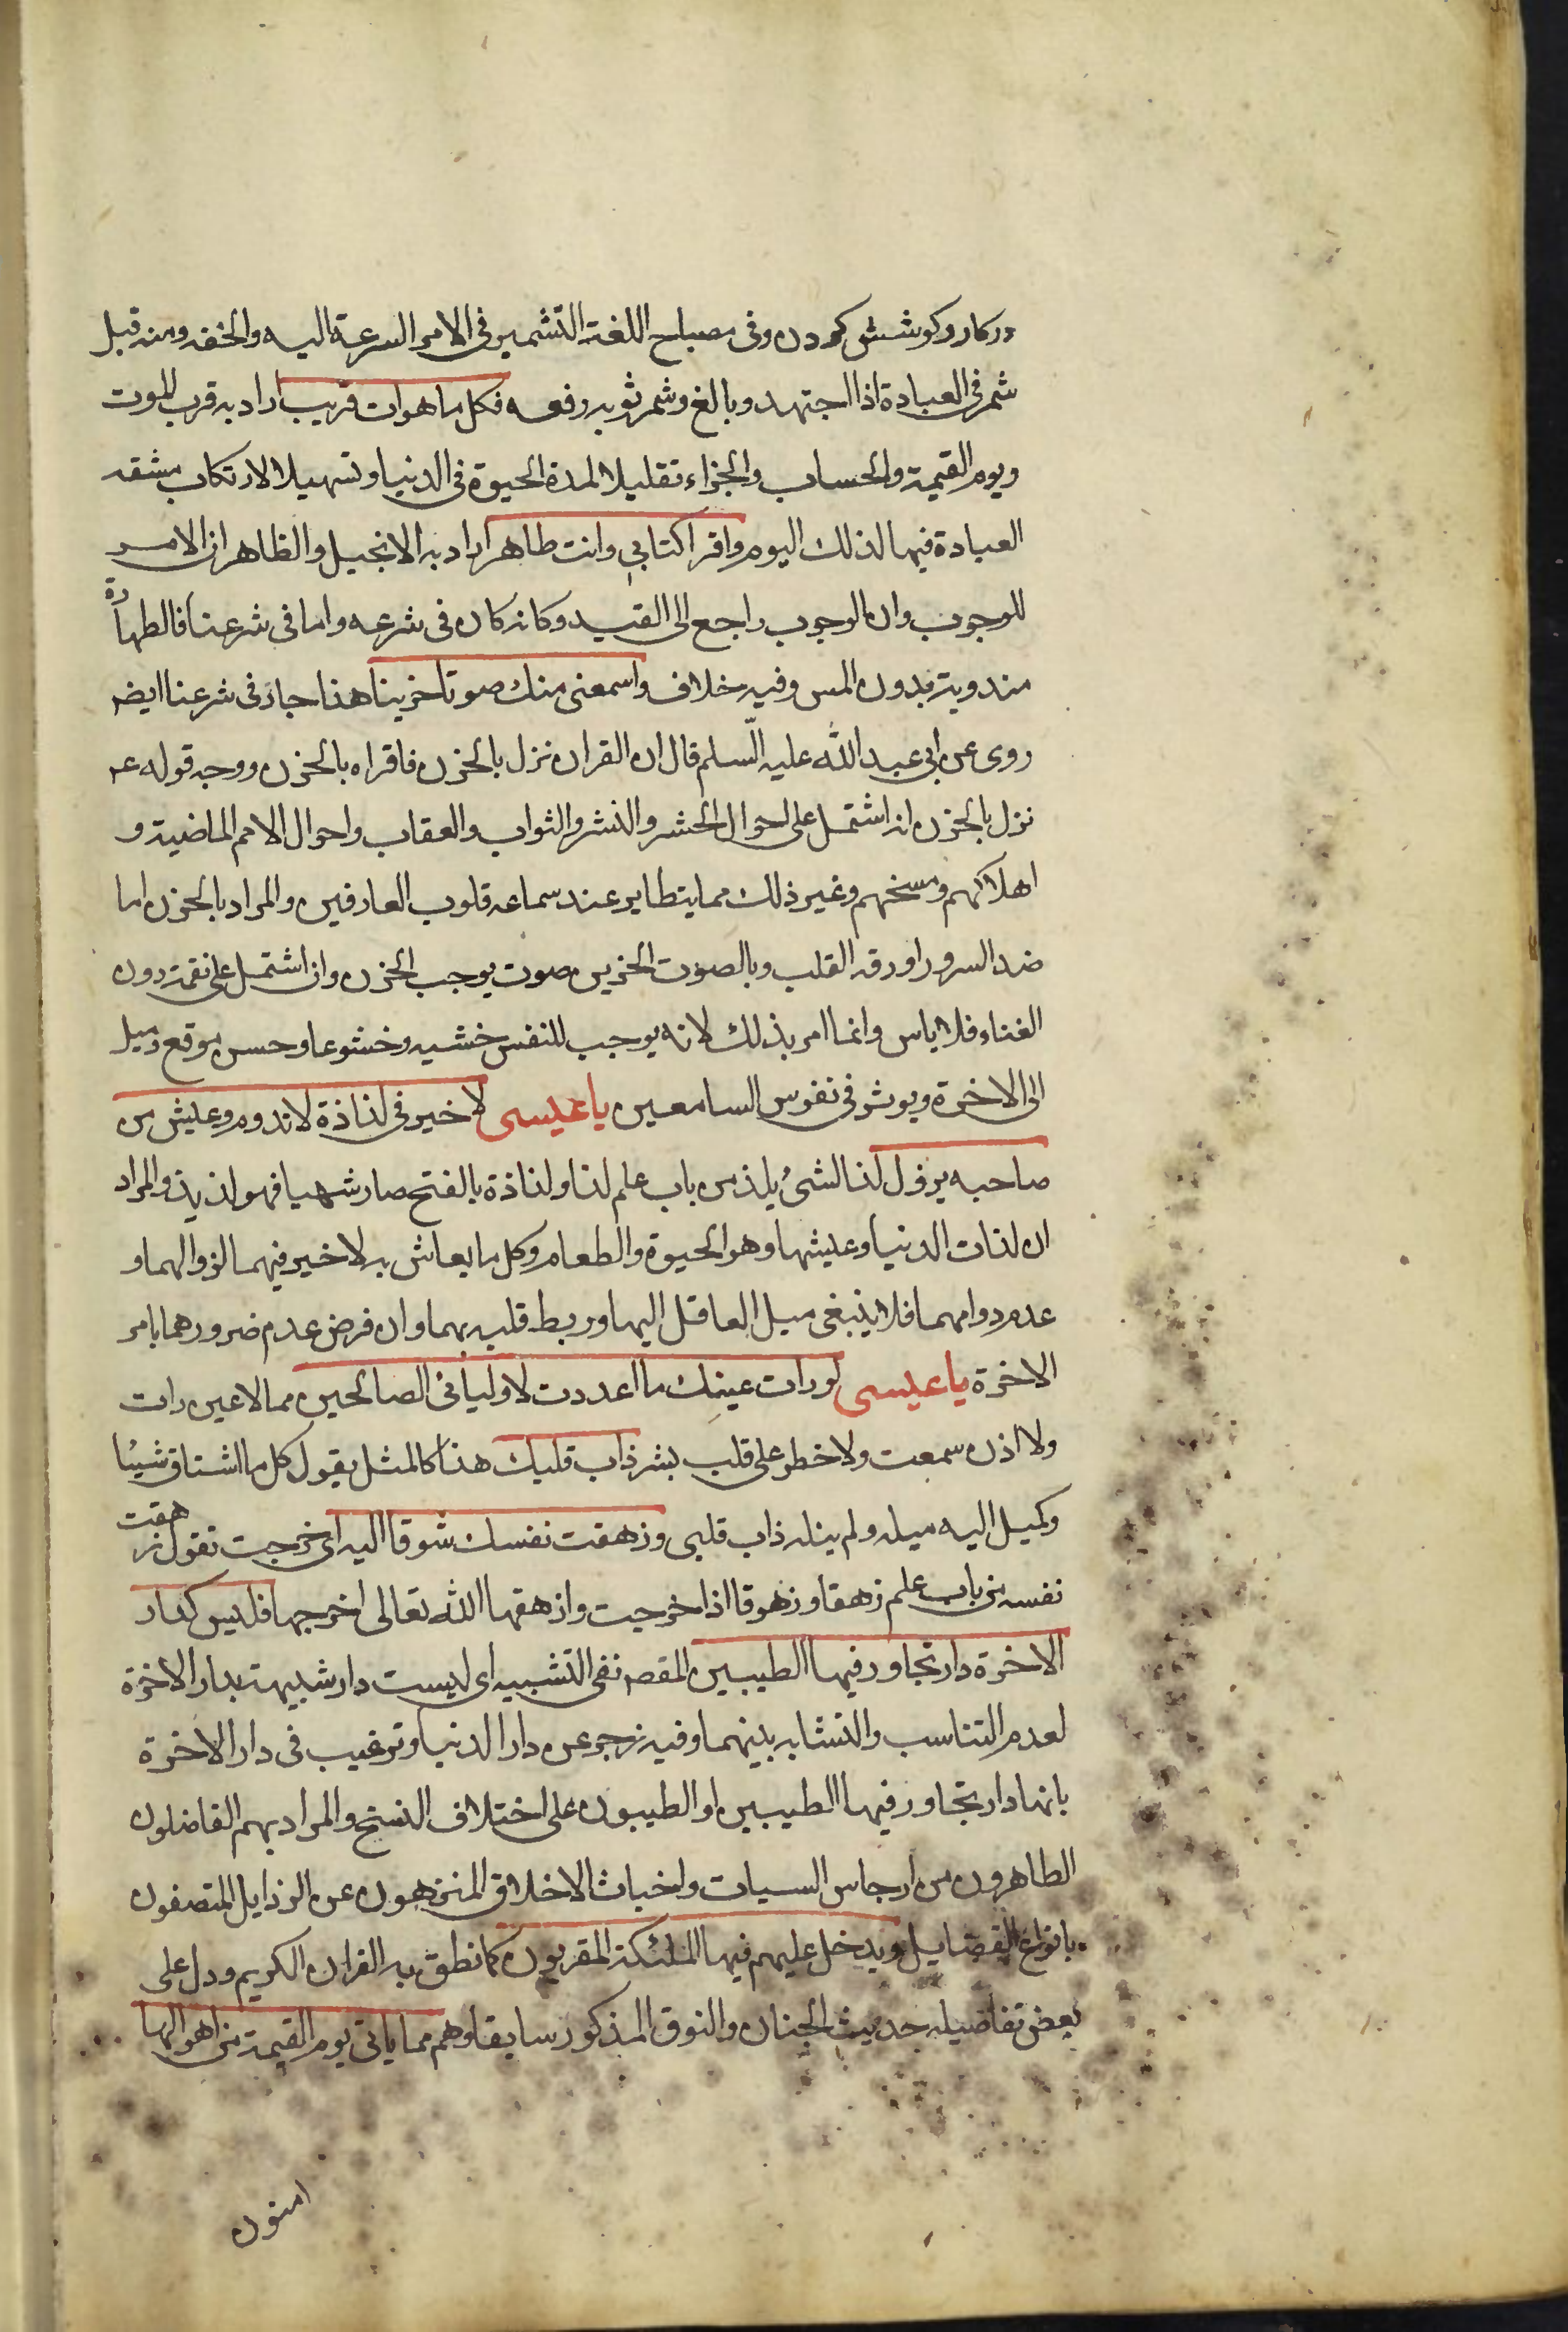 دركار وكوشش كردن وفى مصباح اللغة التشمير فى الامر السرعة اليه والخفه ومنه قيل
شمر فى العبادة اذا اجتهد وبالغ وشمر ثوبه رفعه فكل ما هوات قريب اراد به قرب الموت
ويوم القيمة والحساب والجزاء تقليلا لمدة الحيوة فى الدنيا وتسهيلا لارتكاب مشقه
العبادة فيها لذلك اليوم واقرا كتابى وانت طاهر اراد به الانجيل والظاهر ان الامر
للوجوب وان الوجوب راجع الى القيد وكانه كان فى شرعه واما فى شرعنا فالطهارة
مندوبة بدون المس وفيه خلاف واسمعنى منك صوتا حزينا هذا جاء فى شرعنا ايضه
روى عن ابى عبد الله عليه السلم قال ان القران نزل بالحزن فاقراه بالحزن ووجه قوله عم
نزل بالحزن انه اشتمل على احوال الحشر والنشر والثواب والعقاب واحوال الامم الماضية و
اهلاكهم ومسخهم وغير ذلك مما يتطاير عند سماعه قلوب العارفين والمراد بالحزن اما
ضد السرور او رقه القلب وبالصوت الحزين صوت يوجب الحزن وان اشتمل على نغمة دون
الغناء فلا باس وانما امر بذلك لانه يوجب للنفس خشيه وخشوعا وحسن موقع وميل
الى الاخرة ويوثر فى نفوس السامعين يا عيسى لا خير فى لذاذة لا تدوم وعيش من
صاحبه يزول لذ الشئ يلذ من باب علم لذا ولذاذة بالفتح صار شهيا فهو لذيذ والمراد
ان لذات الدنيا وعيشها وهو الحيوة والطعام وكل ما يعاش به لا خير فيهما لزوالهما و
عدم دوامهما فلا ينبغى ميل العاقل اليها وربط قلبه بهما وان فرض عدم ضررهما بامر
الاخرة يا عيسى لو رات عينك ما اعددت لاوليائى الصالحين مما لا عين رات
ولا اذن سمعت ولا خطر على قلب بشر ذاب قلبك هذا كالمثل يقول كل ما اشتاق شيئا
وكميل اليه ميله ولم ينله ذاب قلبى وزهقت نفسك شوقا اليه اى خرجت تقول زهقت
نفسه من باب علم زهقا وزهوقا اذا خرجت وازهقها الله تعالى اخرجها فليس كدار
الاخرة دار تجاور فيها الطيبين المقصه نفى التشبيه اى ليست دار شبيهة بدار الاخرة
لعدم التناسب والتشابه بينهما وفيه زجر عن دار الدنيا وترغيب فى دار الاخرة
بانها دار تجاور فيها الطيبين او الطيبون على اختلاف النسخ والمراد بهم الفاضلون
الطاهرون من ارجاس السيات واخباث الاخلاق المنزهون عن الرذايل المتصفون
بانواع الفضايل ويدخل عليهم فيها الملئكة المقربون كما نطق به القران الكريم ودل على
بعض تفاضيله حديث الجنان والنوق المذكور سابقا وهم مما ياتى يوم القيمة من اهوالها
امنون